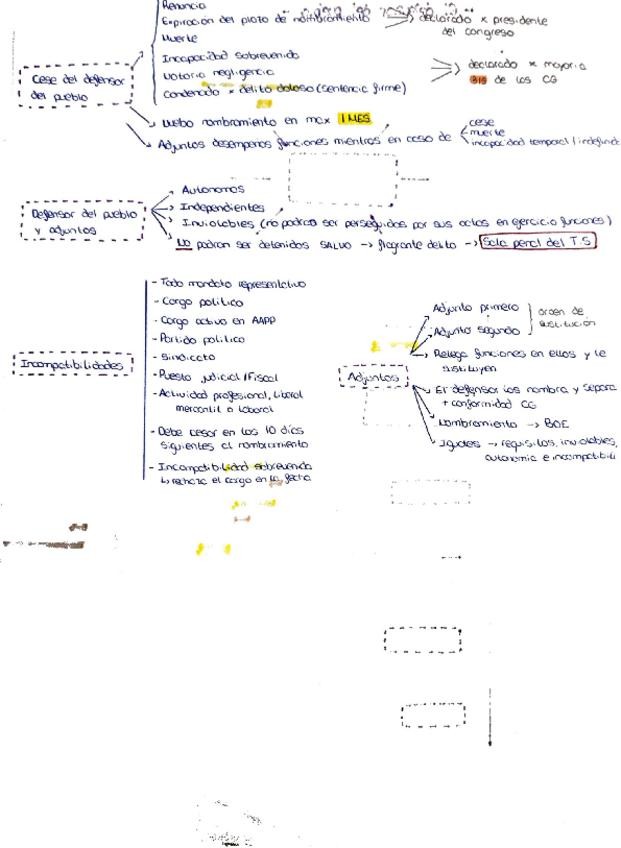 Renuncia
Expiración del plazo de nombramiento
declarado x presidente
del congreso
Muerte
Incapacidad sobrevenida
Notoria negligencia
Condenado x delito doloso (sentencia firme)
declarado x mayoría
3/5 de las CG
Cese del defensor
del pueblo
Nuevo nombramiento en max 1 MES
Adjuntos desempeñan funciones mientras en caso de
cese
muerte
incapacidad temporal / indefinida
Defensor del pueblo
y adjuntos
Autonomos
Independientes
Inviolables (no podran ser perseguidos por sus actos en ejercicio funciones)
No podran ser detenidos SALVO → flagrante delito → Sala penal del T.S
Incompatibilidades
- Todo mandato representativo
- Cargo politico
- Cargo activo en AAPP
- Partido politico
- Sindicato
- Puesto judicial / Fiscal
- Actividad profesional, liberal
mercantil o laboral
- Debe cesar en los 10 días
siguientes al nombramiento
- Incompatibilidad sobrevenida
↳ rechaza el cargo en la fecha
Adjuntos
Adjunto primero
Adjunto segundo
orden de
sustitución
Relega funciones en ellos y le
sustituyen
El defensor los nombra y separa
+ conformidad CG
Nombramiento → BOE
Iguales → requisitos, inviolables,
autonomia e incompatibili